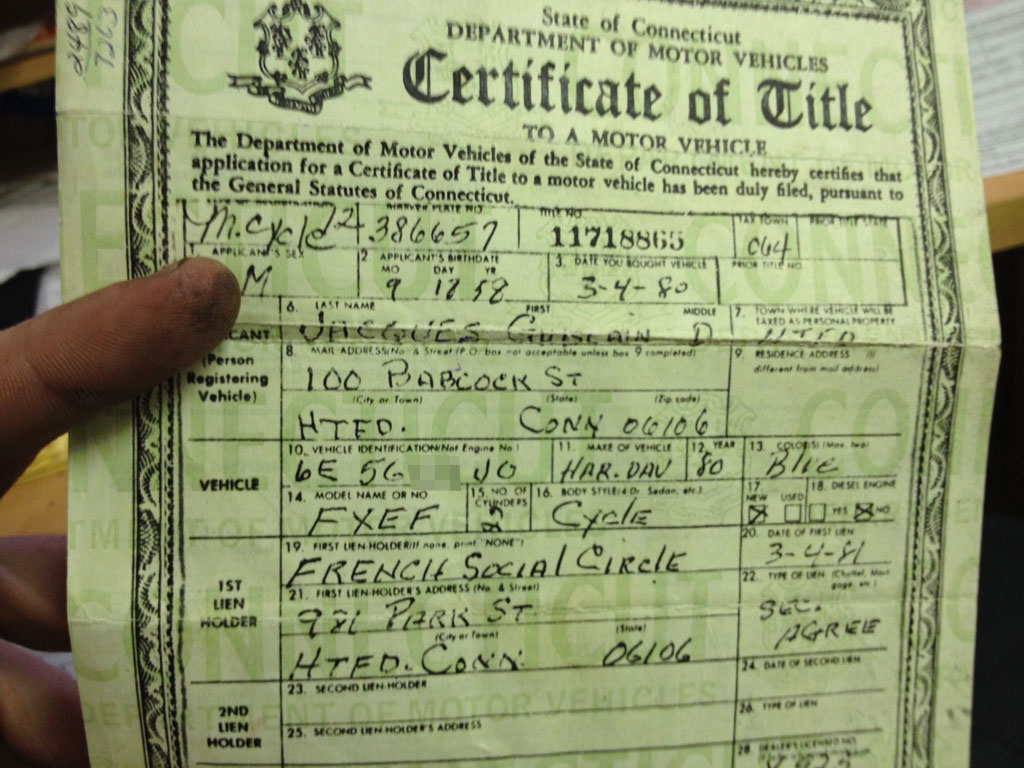 2489
7263
State of Connecticut
DEPARTMENT OF MOTOR VEHICLES
Certificate of Title
TO A MOTOR VEHICLE
The Department of Motor Vehicles of the State of Connecticut hereby certifies that
application for a Certificate of Title to a motor vehicle has been duly filed, pursuant to
the General Statutes of Connecticut.
MARKER PLATE NO. TITLE NO. TAX TOWN PRIOR TITLE STATE
M.Cycle 386657 11718865 064
1. APPLICANT'S SEX 2. APPLICANT'S BIRTHDATE 3. DATE YOU BOUGHT VEHICLE PRIOR TITLE NO.
MO DAY YR
M 9 18 58 3-4-80
6. LAST NAME FIRST MIDDLE 7. TOWN WHERE VEHICLE WILL BE
TAXED AS PERSONAL PROPERTY
JACQUES D HTFD
CANT
(Person
Registering
Vehicle)
8. MAIL ADDRESS (No. & Street) (P.O. box not acceptable unless box 9 completed) 9. RESIDENCE ADDRESS (If
different from mail address)
100 BABCOCK ST
(City or Town) (State) (Zip code)
HTFD. CONN 06106
VEHICLE
10. VEHICLE IDENTIFICATION (Not Engine No.) 11. MAKE OF VEHICLE 12. YEAR 13. COLOR(S) (Max. two)
6E 5G JO HAR. DAV 80 Blue
14. MODEL NAME OR NO 15. NO OF CYLINDERS 16. BODY STYLE (4 Dr. Sedan, etc.) 17. NEW USED 18. DIESEL ENGINE
YES NO
FXEF 2 Cycle
1ST
LIEN
HOLDER
19. FIRST LIEN-HOLDER (If none, print "NONE") 20. DATE OF FIRST LIEN
FRENCH Social CIRCLE 3-4-81
21. FIRST LIEN-HOLDER'S ADDRESS (No. & Street) 22. TYPE OF LIEN
921 PARK ST SEC.
AGREE
(City or Town) (State)
HTFD. CONN. 06106
24. DATE OF SECOND LIEN
2ND
LIEN
HOLDER
23. SECOND LIEN-HOLDER
26. TYPE OF LIEN
25. SECOND LIEN-HOLDER'S ADDRESS
28. DEALER'S LICENSE NO.